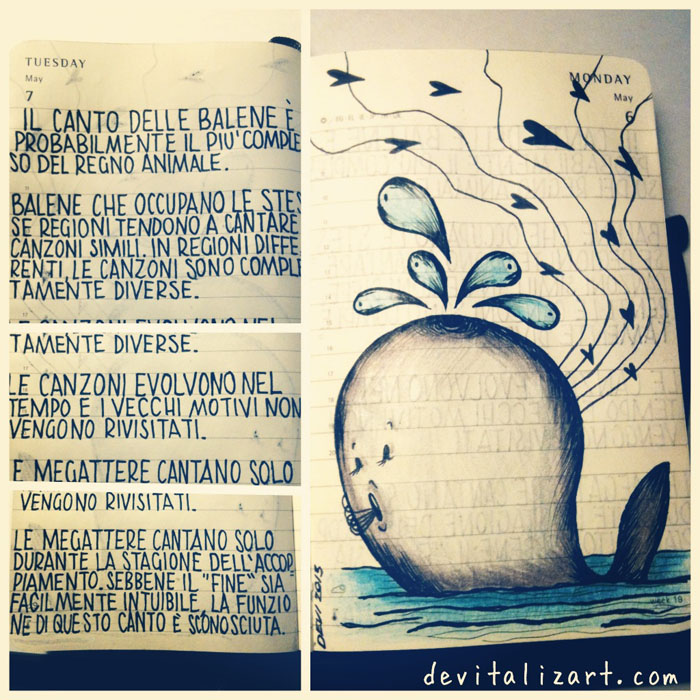 TUESDAY
May
7
IL CANTO DELLE BALENE È
PROBABILMENTE IL PIU' COMPLE
SO DEL REGNO ANIMALE.
BALENE CHE OCCUPANO LE STES
SE REGIONI TENDONO A CANTARE
CANZONI SIMILI. IN REGIONI DIFFE
RENTI, LE CANZONI SONO COMPLE
TAMENTE DIVERSE.
TAMENTE DIVERSE.
LE CANZONI EVOLVONO NEL
TEMPO E I VECCHI MOTIVI NON
VENGONO RIVISITATI.
E MEGATTERE CANTANO SOLO
VENGONO RIVISITATI.
LE MEGATTERE CANTANO SOLO
DURANTE LA STAGIONE DELL'ACCOP
PIAMENTO. SEBBENE IL "FINE" SIA
FACILMENTE INTUIBILE, LA FUNZIO
NE DI QUESTO CANTO È SCONOSCIUTA.
MONDAY
May
6
DEVI 2013
week 19
devitalizart.com